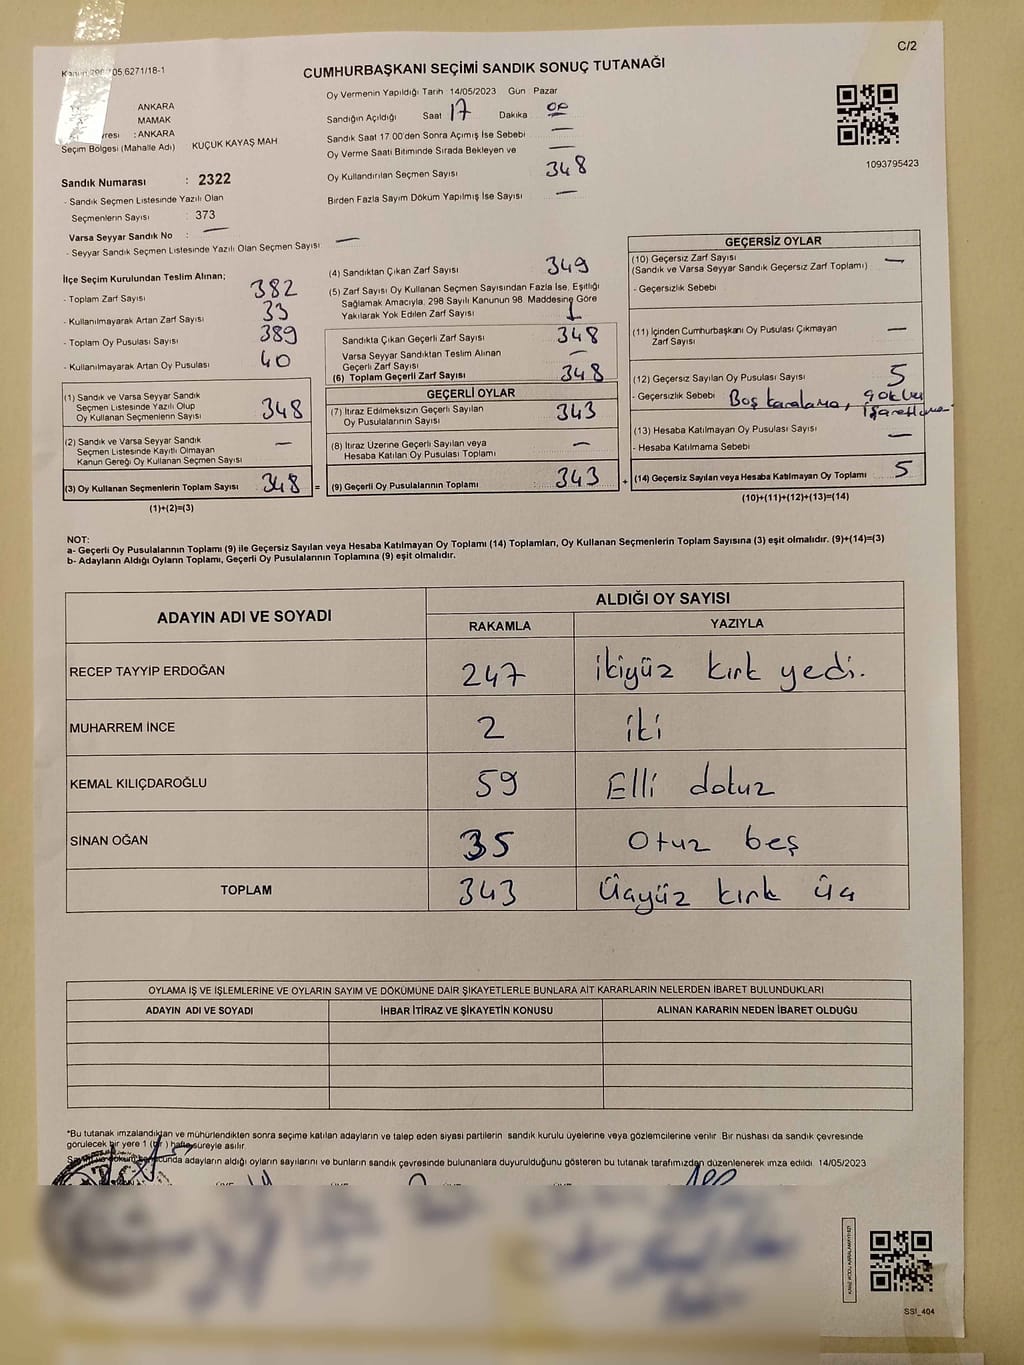 C/2
CUMHURBAŞKANI SEÇİMİ SANDIK SONUÇ TUTANAĞI
ANKARA
MAMAK
: ANKARA
Seçim Bölgesi (Mahalle Adı) KÜÇÜK KAYAŞ MAH
Sandık Numarası : 2322
- Sandık Seçmen Listesinde Yazılı Olan
Seçmenlerin Sayısı : 373
Varsa Seyyar Sandık No : —
- Seyyar Sandık Seçmen Listesinde Yazılı Olan Seçmen Sayısı : —
Oy Vermenin Yapıldığı Tarih 14/05/2023 Gün Pazar
Sandığın Açıldığı Saat 17 Dakika 00
Sandık Saat 17.00'den Sonra Açımış İse Sebebi —
Oy Verme Saati Bitiminde Sırada Bekleyen ve —
Oy Kullandırılan Seçmen Sayısı 348
Birden Fazla Sayım Döküm Yapılmış İse Sayısı —
1093795423
İlçe Seçim Kurulundan Teslim Alınan;
- Toplam Zarf Sayısı 382
- Kullanılmayarak Artan Zarf Sayısı 33
- Toplam Oy Pusulası Sayısı 389
- Kullanılmayarak Artan Oy Pusulası 40
(1) Sandık ve Varsa Seyyar Sandık
Seçmen Listesinde Yazılı Olup
Oy Kullanan Seçmenlerin Sayısı 348
(2) Sandık ve Varsa Seyyar Sandık
Seçmen Listesinde Kayıtlı Olmayan
Kanun Gereği Oy Kullanan Seçmen Sayısı —
(3) Oy Kullanan Seçmenlerin Toplam Sayısı 348 =
(1)+(2)=(3)
(4) Sandıktan Çıkan Zarf Sayısı 349
(5) Zarf Sayısı Oy Kullanan Seçmen Sayısından Fazla İse, Eşitliği
Sağlamak Amacıyla, 298 Sayılı Kanunun 98. Maddesine Göre
Yakılarak Yok Edilen Zarf Sayısı 1
Sandıkta Çıkan Geçerli Zarf Sayısı 348
Varsa Seyyar Sandıktan Teslim Alınan
Geçerli Zarf Sayısı —
(6) Toplam Geçerli Zarf Sayısı 348
GEÇERLİ OYLAR
(7) İtiraz Edilmeksizin Geçerli Sayılan
Oy Pusulalarının Sayısı 343
(8) İtiraz Üzerine Geçerli Sayılan veya
Hesaba Katılan Oy Pusulası Toplamı —
(9) Geçerli Oy Pusulalarının Toplamı : 343 +
GEÇERSİZ OYLAR
(10) Geçersiz Zarf Sayısı —
(Sandık ve Varsa Seyyar Sandık Geçersiz Zarf Toplamı)
- Geçersizlik Sebebi
(11) İçinden Cumhurbaşkanı Oy Pusulası Çıkmayan
Zarf Sayısı —
(12) Geçersiz Sayılan Oy Pusulası Sayısı 5
- Geçersizlik Sebebi Boş karalama,
(13) Hesaba Katılmayan Oy Pusulası Sayısı —
- Hesaba Katılmama Sebebi
(14) Geçersiz Sayılan veya Hesaba Katılmayan Oy Toplamı 5
(10)+(11)+(12)+(13)=(14)
NOT:
a- Geçerli Oy Pusulalarının Toplamı (9) ile Geçersiz Sayılan veya Hesaba Katılmayan Oy Toplamı (14) Toplamları, Oy Kullanan Seçmenlerin Toplam Sayısına (3) eşit olmalıdır. (9)+(14)=(3)
b- Adayların Aldığı Oyların Toplamı, Geçerli Oy Pusulalarının Toplamına (9) eşit olmalıdır.
ADAYIN ADI VE SOYADI ALDIĞI OY SAYISI
RAKAMLA YAZIYLA
RECEP TAYYİP ERDOĞAN 247 ikiyüz kırk yedi.
MUHARREM İNCE 2 iki
KEMAL KILIÇDAROĞLU 59 Elli dokuz
SİNAN OĞAN 35 Otuz beş
TOPLAM 343 Üçyüz kırk üç
OYLAMA İŞ VE İŞLEMLERİNE VE OYLARIN SAYIM VE DÖKÜMÜNE DAİR ŞİKAYETLERLE BUNLARA AİT KARARLARIN NELERDEN İBARET BULUNDUKLARI
ADAYIN ADI VE SOYADI İHBAR İTİRAZ VE ŞİKAYETİN KONUSU ALINAN KARARIN NEDEN İBARET OLDUĞU
*Bu tutanak imzalandıktan ve mühürlendikten sonra seçime katılan adayların ve talep eden siyasi partilerin sandık kurulu üyelerine veya gözlemcilerine verilir. Bir nüshası da sandık çevresinde
görülecek bir yere 1 (bir) hafta süreyle asılır.
adayların aldığı oyların sayılarını ve bunların sandık çevresinde bulunanlara duyurulduğunu gösteren bu tutanak tarafımızdan düzenlenerek imza edildi. 14/05/2023
SSİ_404